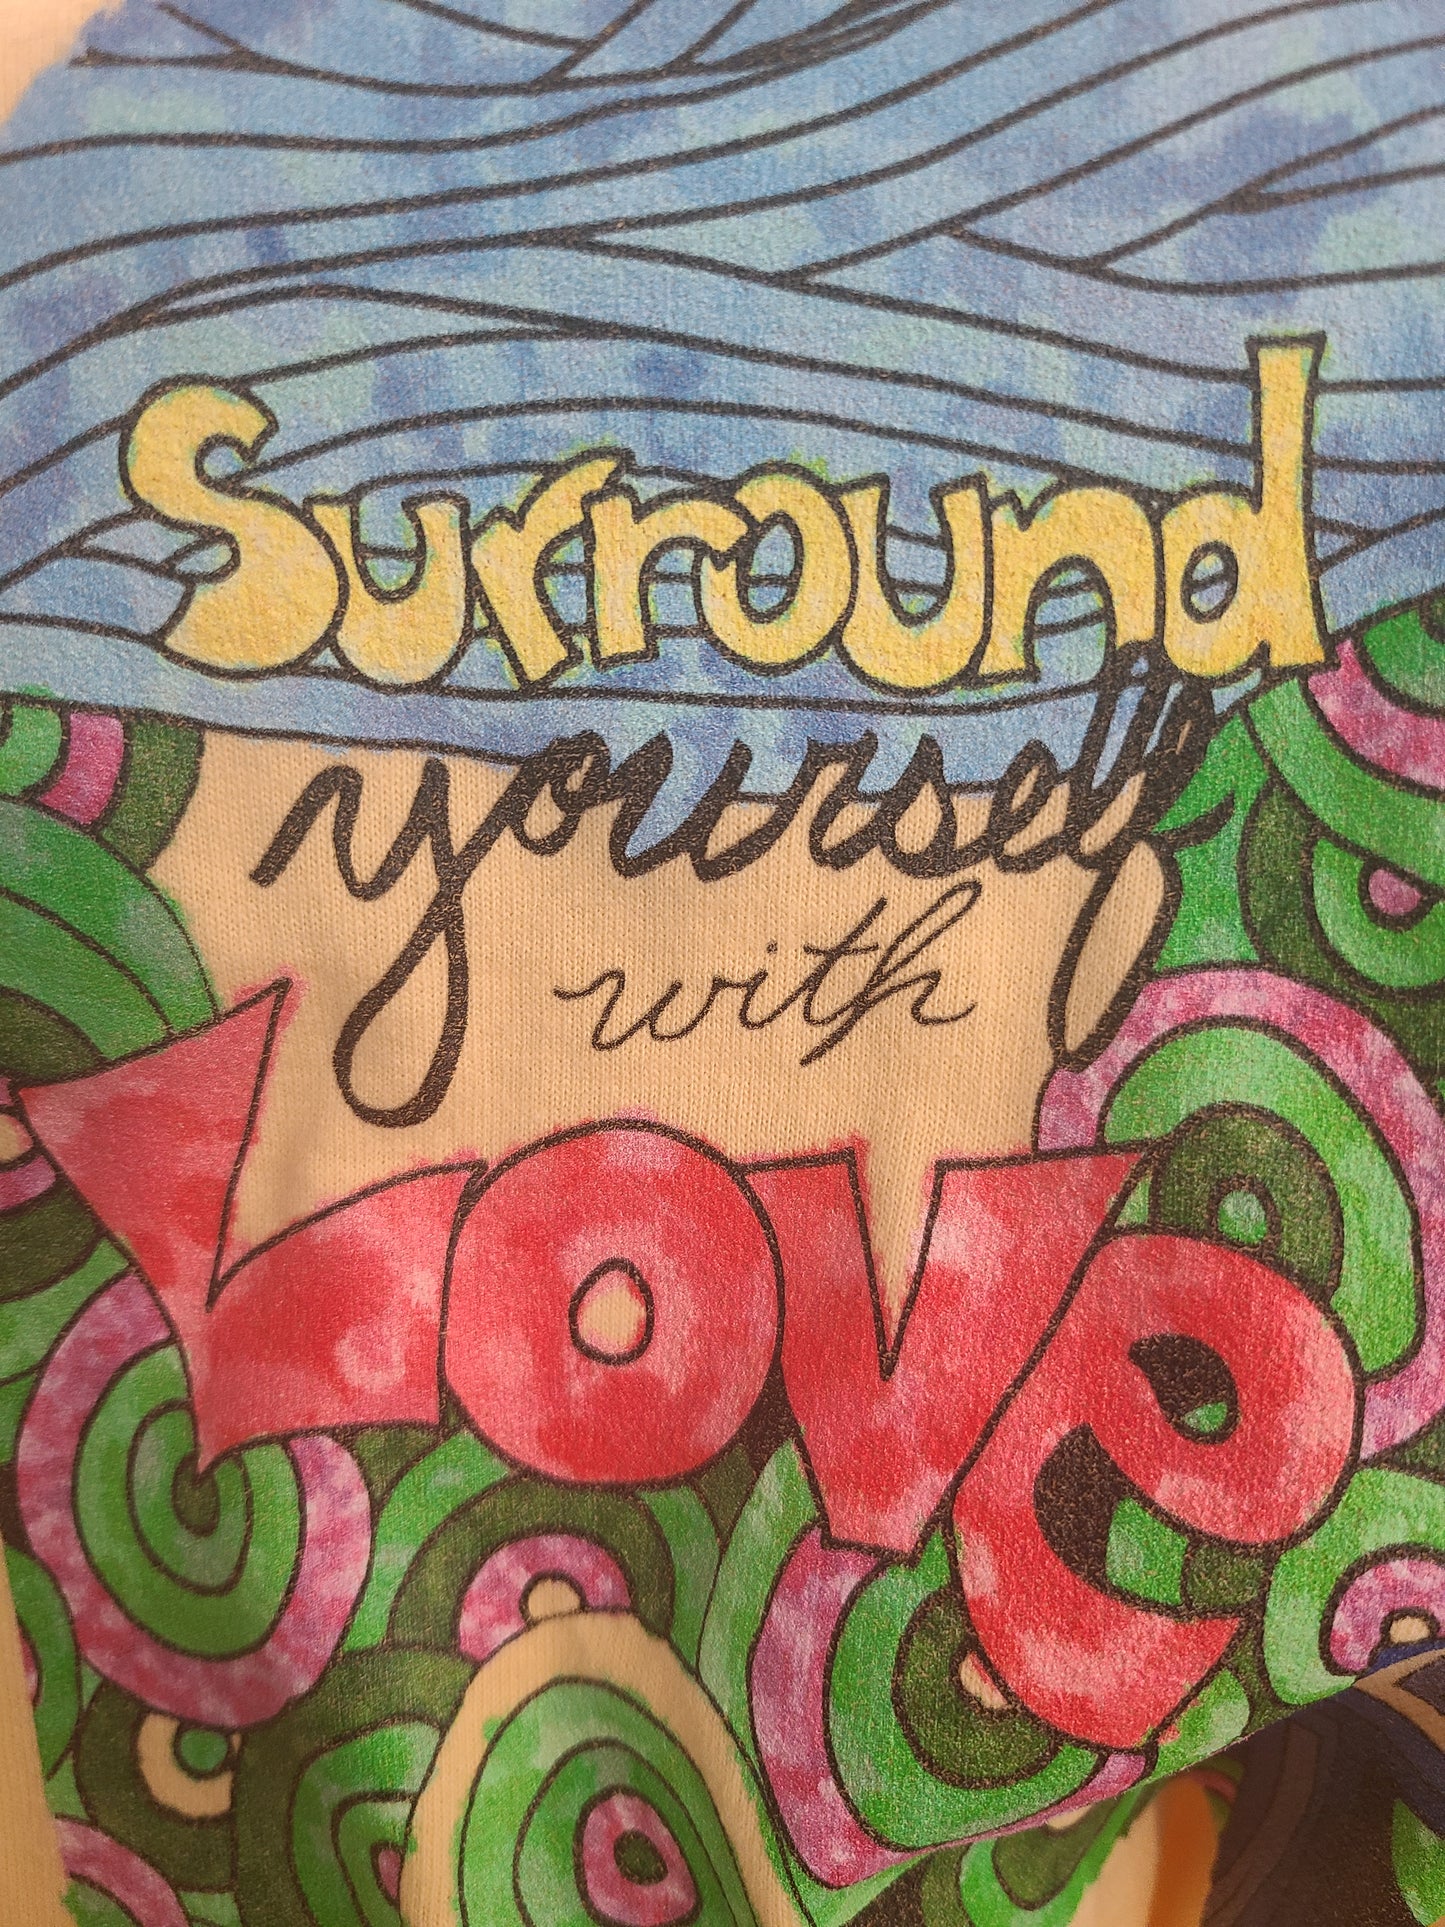 Surround
yourself
with
Love